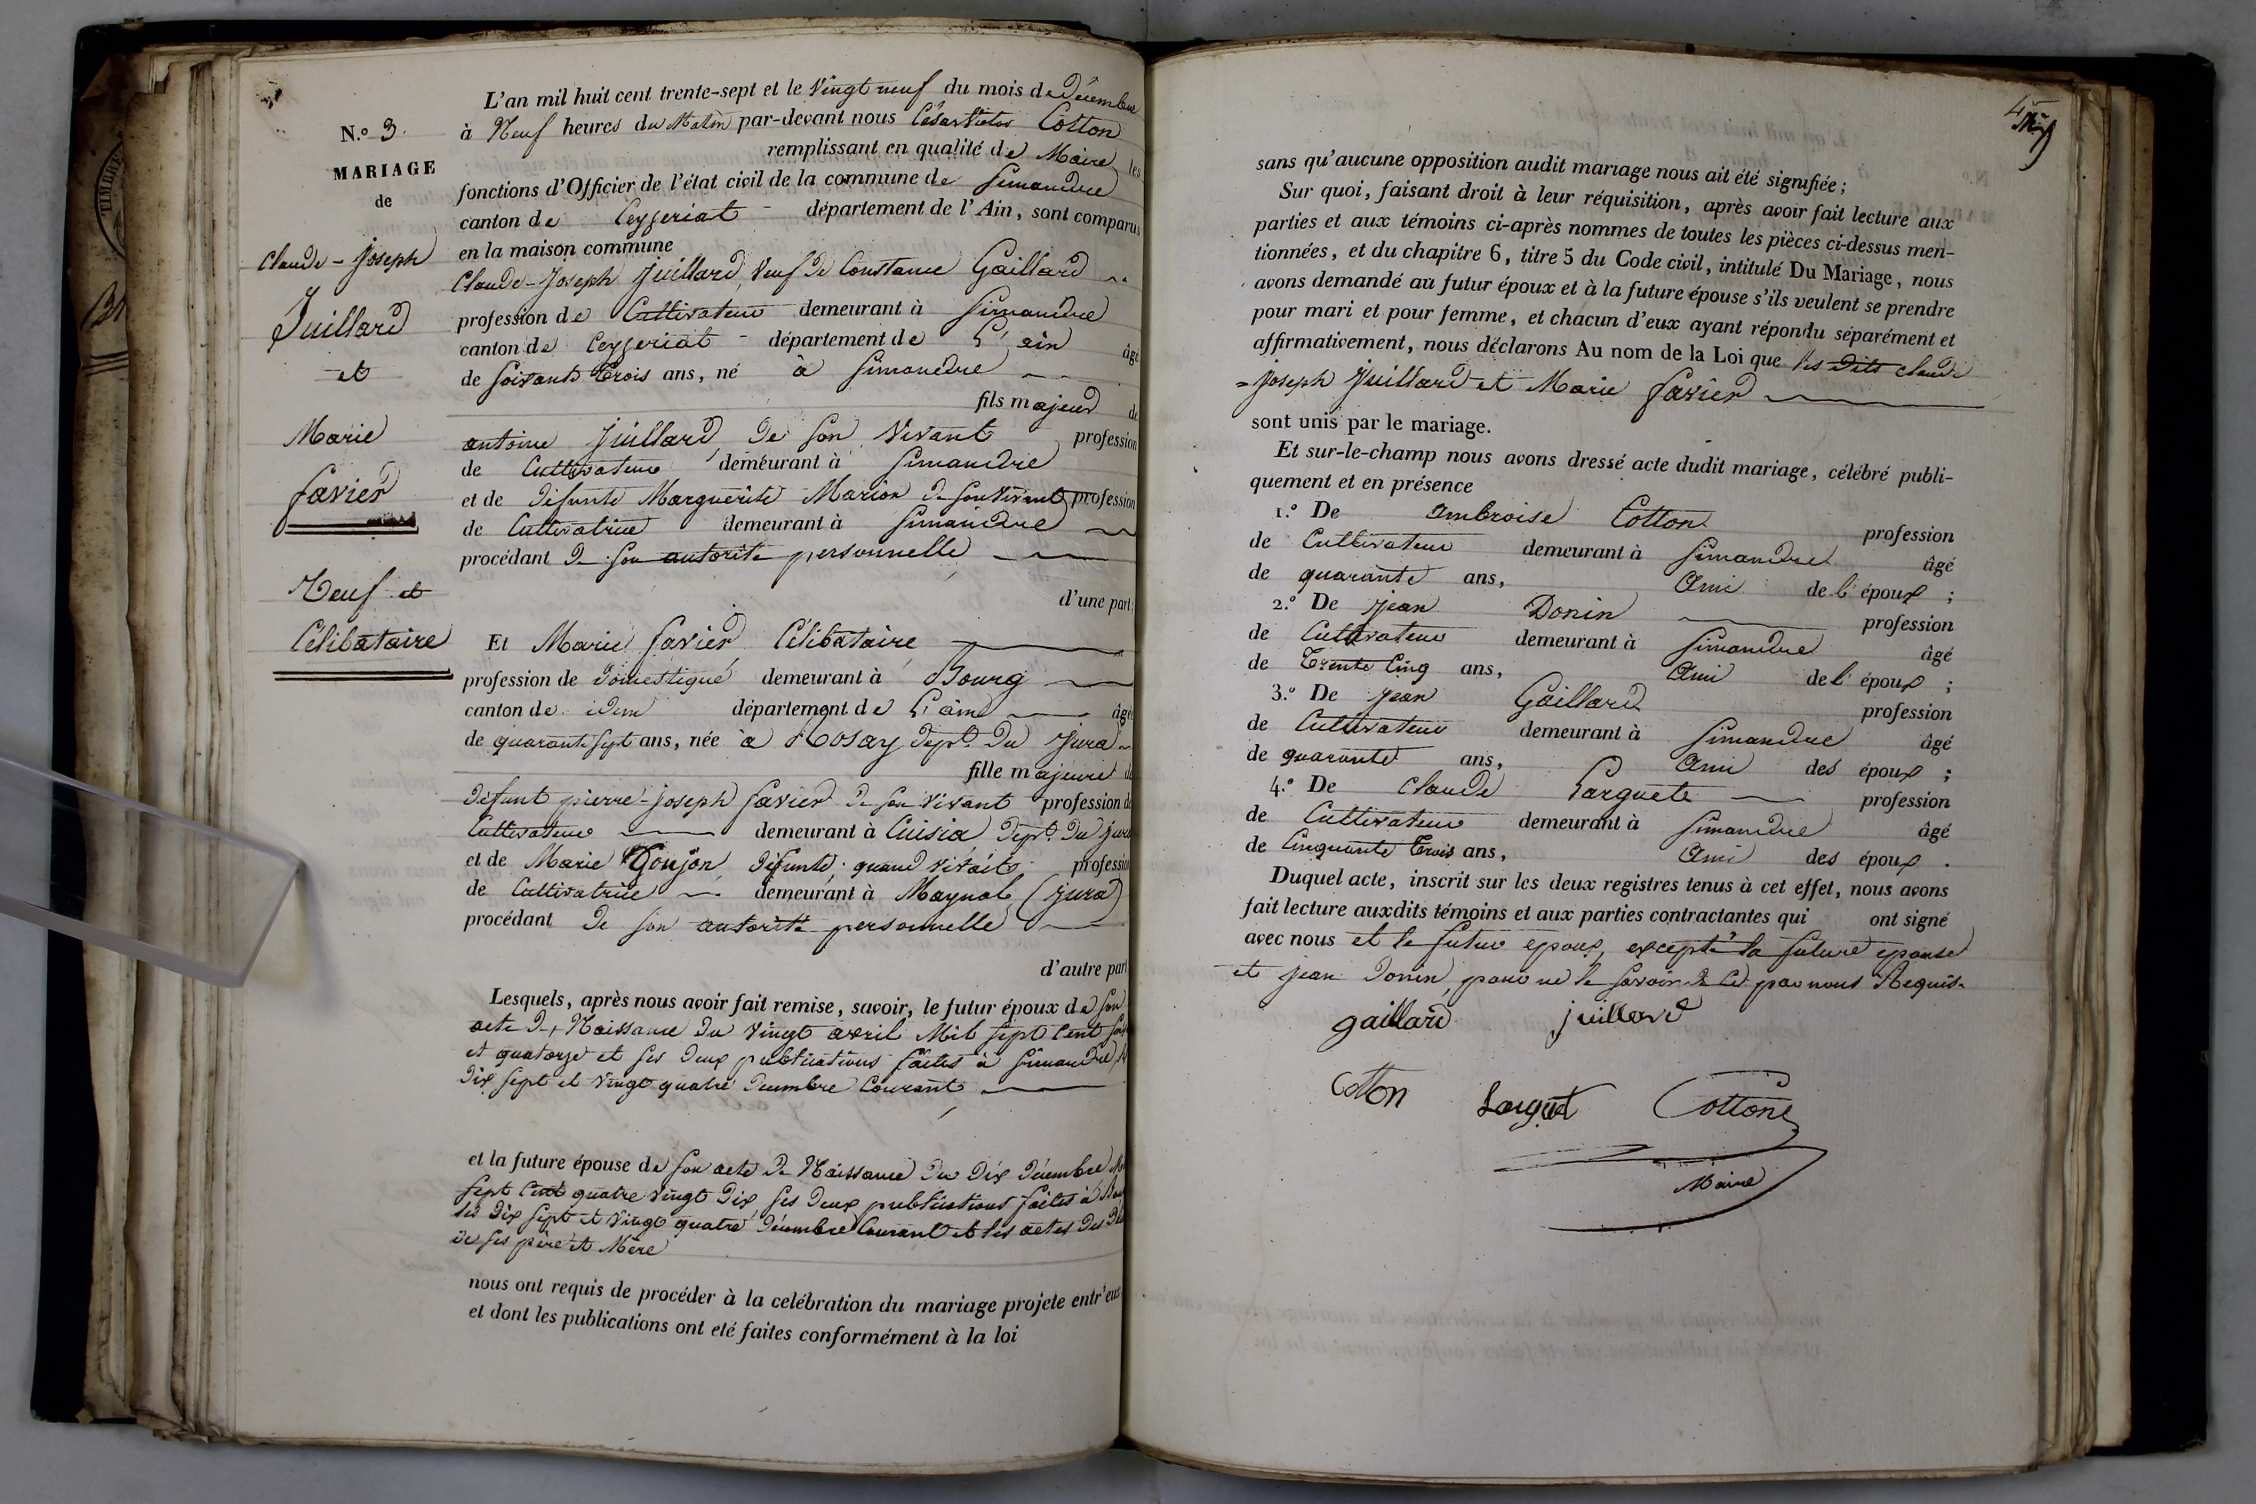 N.º 3.
MARIAGE
de
Claude-Joseph
Juillard
et
Marie
favier
Veuf et
Célibataire
TIMBRE
L'an mil huit cent trente-sept et le Vingt neuf du mois de Décembre
à Neuf heures du Matin par-devant nous César Victor Cotton
remplissant en qualité de Maire les
fonctions d'Officier de l'état civil de la commune de Simandre
canton de Ceyzeriat département de l'Ain, sont comparus
en la maison commune
Claude-Joseph Juillard, Veuf de Constance Gaillard
profession de Cultivateur demeurant à Simandre
canton de Ceyzeriat département de L'ain âgé
de Soixante Trois ans, né à Simandre
fils majeur de
antoine Juillard, de son Vivant profession
de Cultivateur demeurant à Simandre
et de défunte Marguerite Marion de son Vivant profession
de Cultivatrice demeurant à Simandre
procédant de son autorité personnelle
d'une part.
Et Marie favier Célibataire
profession de Domestique demeurant à Bourg
canton de idem département de L'ain âgée
de quarante sept ans, née à Rosay dépt. du Jura
fille majeure de
défunt pierre-Joseph favier de son vivant profession de
Cultivateur demeurant à Cuisia dépt. du jura
et de Marie Goujon défunte, quand vivait profession
de Cultivatrice demeurant à Maynal (jura)
procédant de son autorité personnelle
d'autre part
Lesquels, après nous avoir fait remise, savoir, le futur époux de son
acte de Naissance du Vingt avril Mil sept Cent
et quatorze et ses deux publications faites à Simandre
dix sept et Vingt quatre décembre Courant
et la future épouse de son acte de Naissance du Dix décembre
sept Cent quatre Vingt Dix, ses deux publications faites à
les Dix Sept et Vingt quatre décembre Courant et les actes des
de ses père et Mère
nous ont requis de procéder à la celébration du mariage projete entr'eux
et dont les publications ont eté faites conformément à la loi
sans qu'aucune opposition audit mariage nous ait été signifiée ;
Sur quoi, faisant droit à leur réquisition, après avoir fait lecture aux
parties et aux témoins ci-après nommes de toutes les pièces ci-dessus men-
tionnées, et du chapitre 6, titre 5 du Code civil, intitulé Du Mariage, nous
avons demandé au futur époux et à la future épouse s'ils veulent se prendre
pour mari et pour femme, et chacun d'eux ayant répondu séparément et
affirmativement, nous déclarons Au nom de la Loi que les dits Claude
=Joseph Juillard et Marie favier
sont unis par le mariage.
Et sur-le-champ nous avons dressé acte dudit mariage, célébré publi-
quement et en présence
1.º De Ambroise Cotton profession
de Cultivateur demeurant à Simandre âgé
de quarante ans, Ami de l' époux ;
2.º De Jean Donin profession
de Cultivateur demeurant à Simandre âgé
de Trente Cinq ans, Ami de l' époux ;
3.º De Jean Gaillard profession
de Cultivateur demeurant à Simandre âgé
de quarante ans, Ami des époux ;
4.º De Claude Larguete profession
de Cultivateur demeurant à Simandre âgé
de Cinquante Trois ans, Ami des époux .
Duquel acte, inscrit sur les deux registres tenus à cet effet, nous avons
fait lecture auxdits témoins et aux parties contractantes qui ont signé
avec nous et le futur epoux, excepté la future epouse
et Jean Donin, pour ne le savoir de ce par nous Requis.
gaillard juillard
Cotton Larguet Cotton
Maire